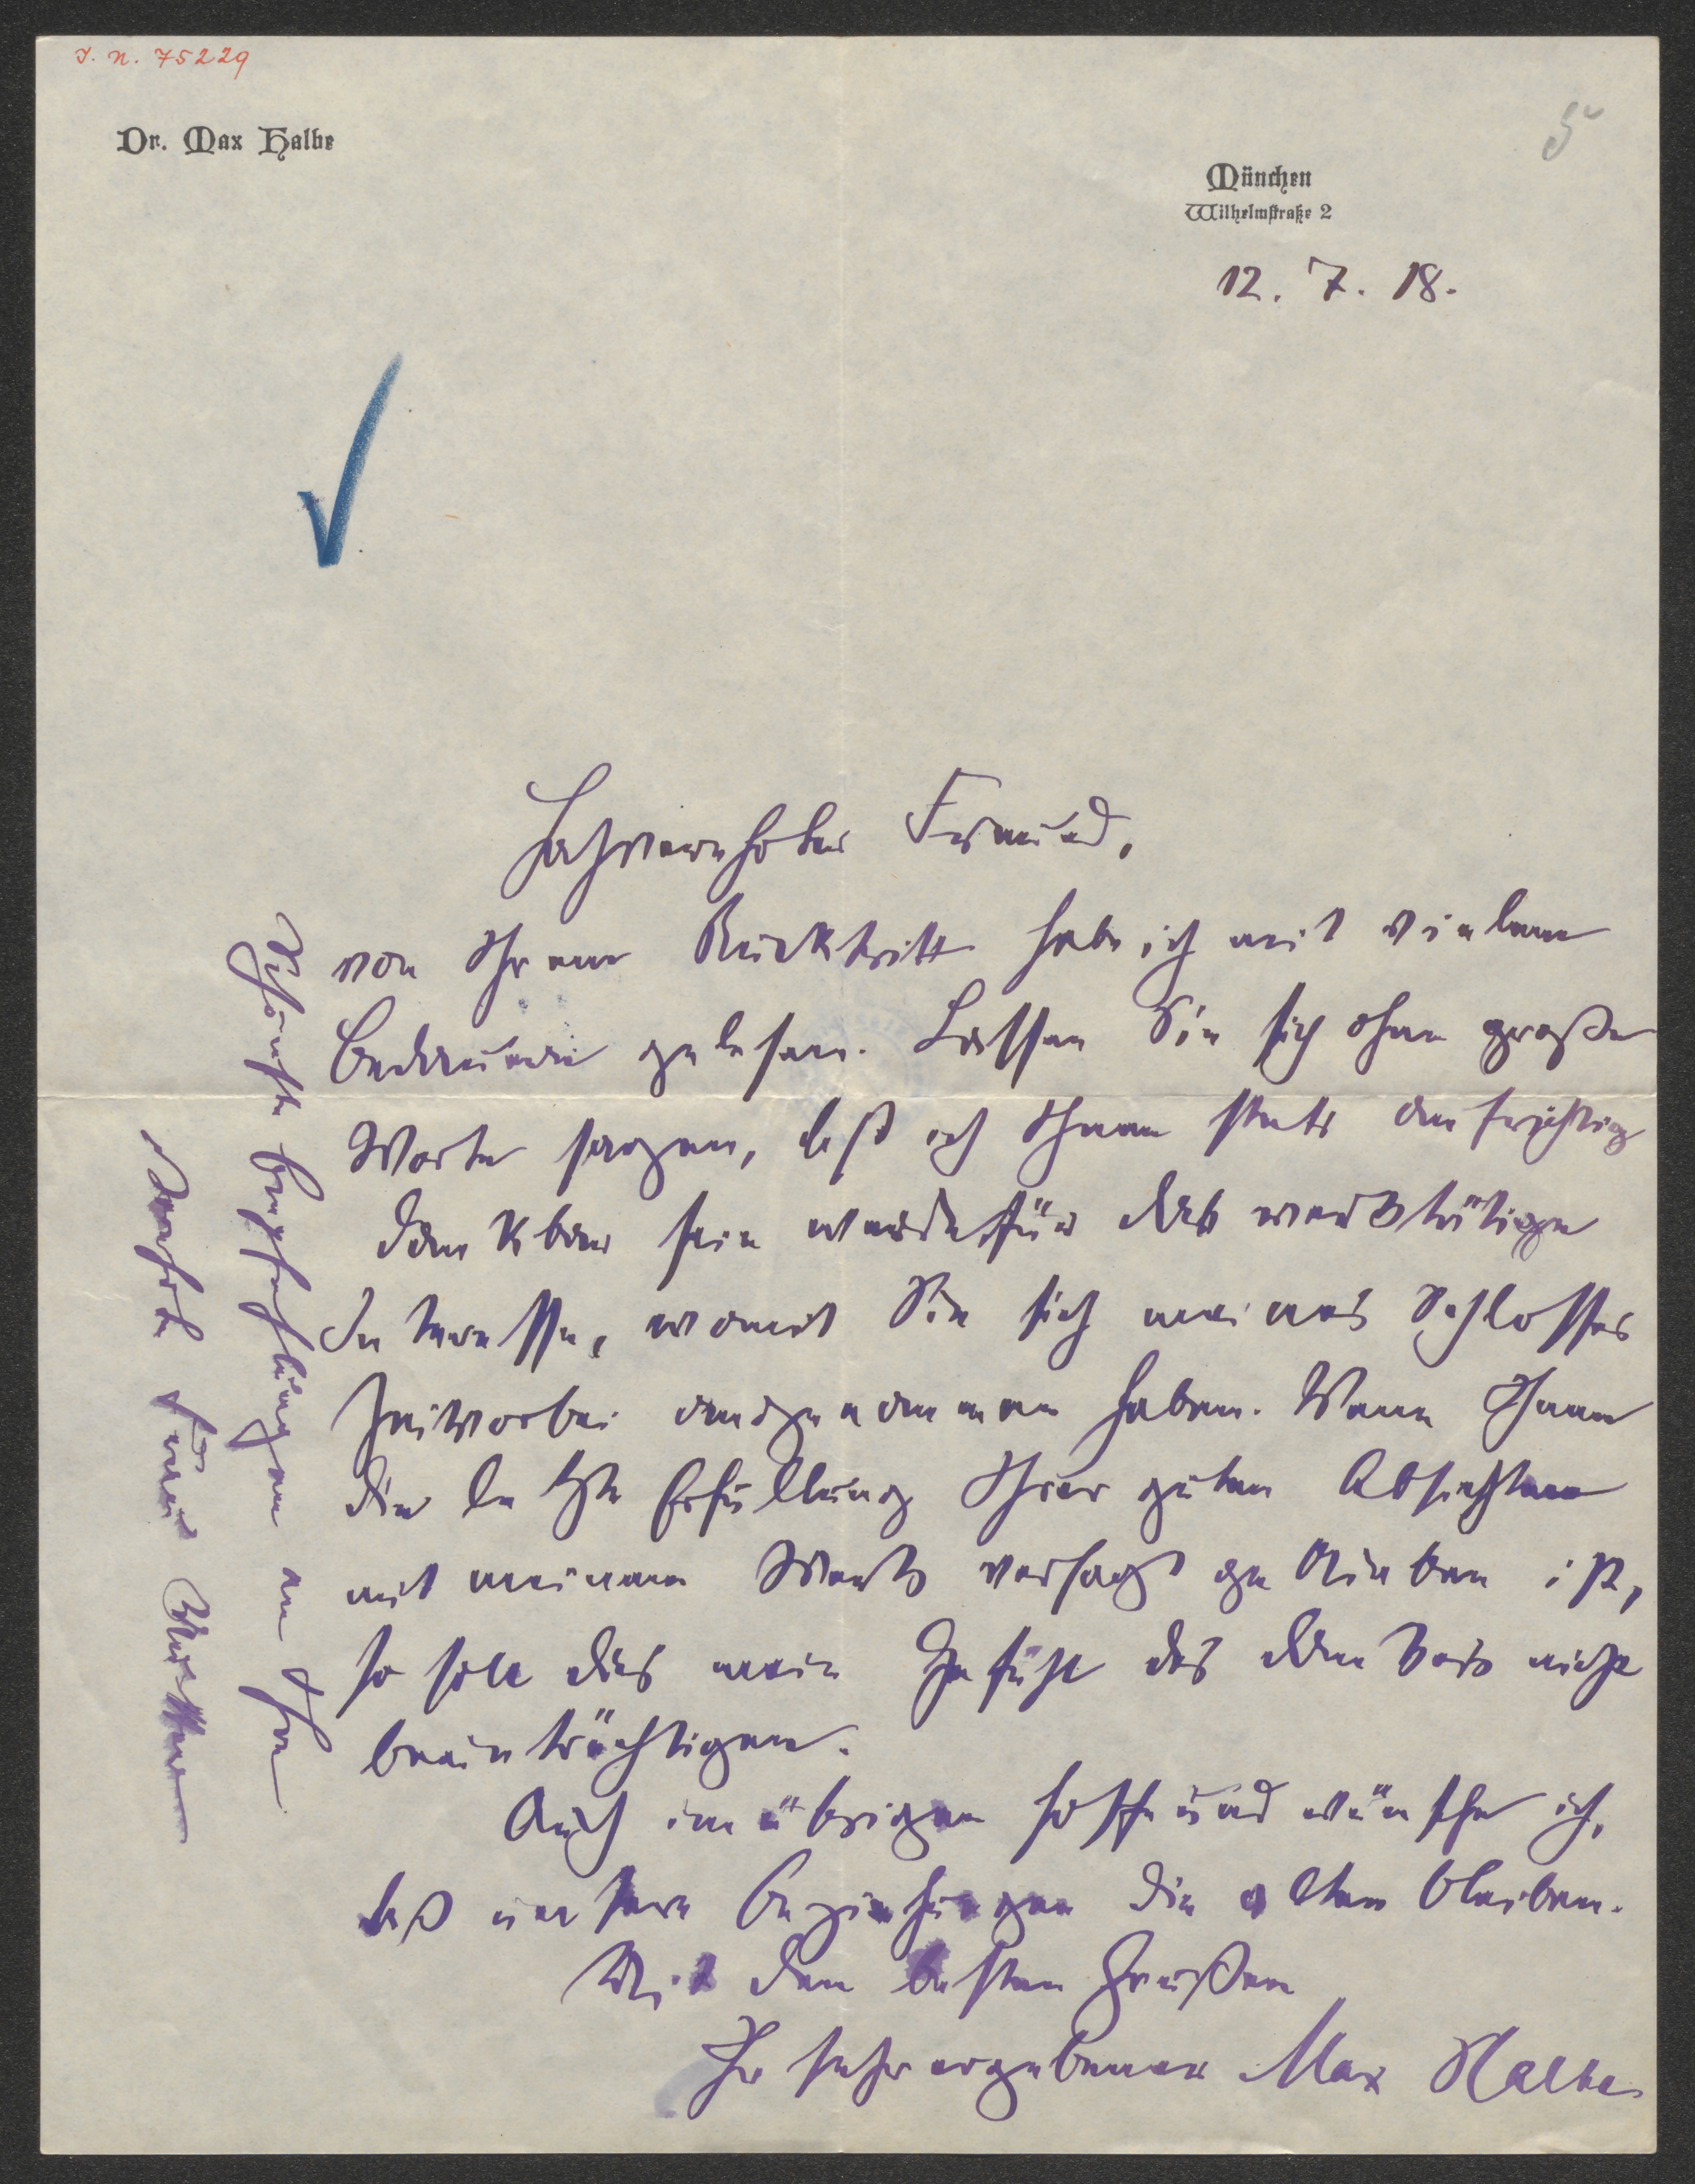 I. N. 75229
Dr. Max Halbe
5
München
Wilhelmstraße 2
12. 7. 18.
Hochverehrter Freund,
von Ihrem Rücktritt habe ich mit vielem
Bedauern gelesen. Lassen Sie sich ohne große
Worte sagen, daß ich Ihnen stets aufrichtig
dankbar sein werde für das werktätige
Interesse, womit Sie sich meines Schlosses
Zeitvorbei angenommen haben. Wenn Ihnen
die letzte Erfüllung Ihrer guten Absichten
mit meinem Werk versagt geblieben ist,
so soll dies mein Gefühl des Dankes nicht
beeinträchtigen.
Auch im übrigen hoffe und wünsche ich,
daß unsere Beziehungen die alten bleiben.
Mit den besten Grüßen
Ihr sehr ergebener Max Halbe
Schönste Empfehlungen an Ihre
verehrte Frau Mutter